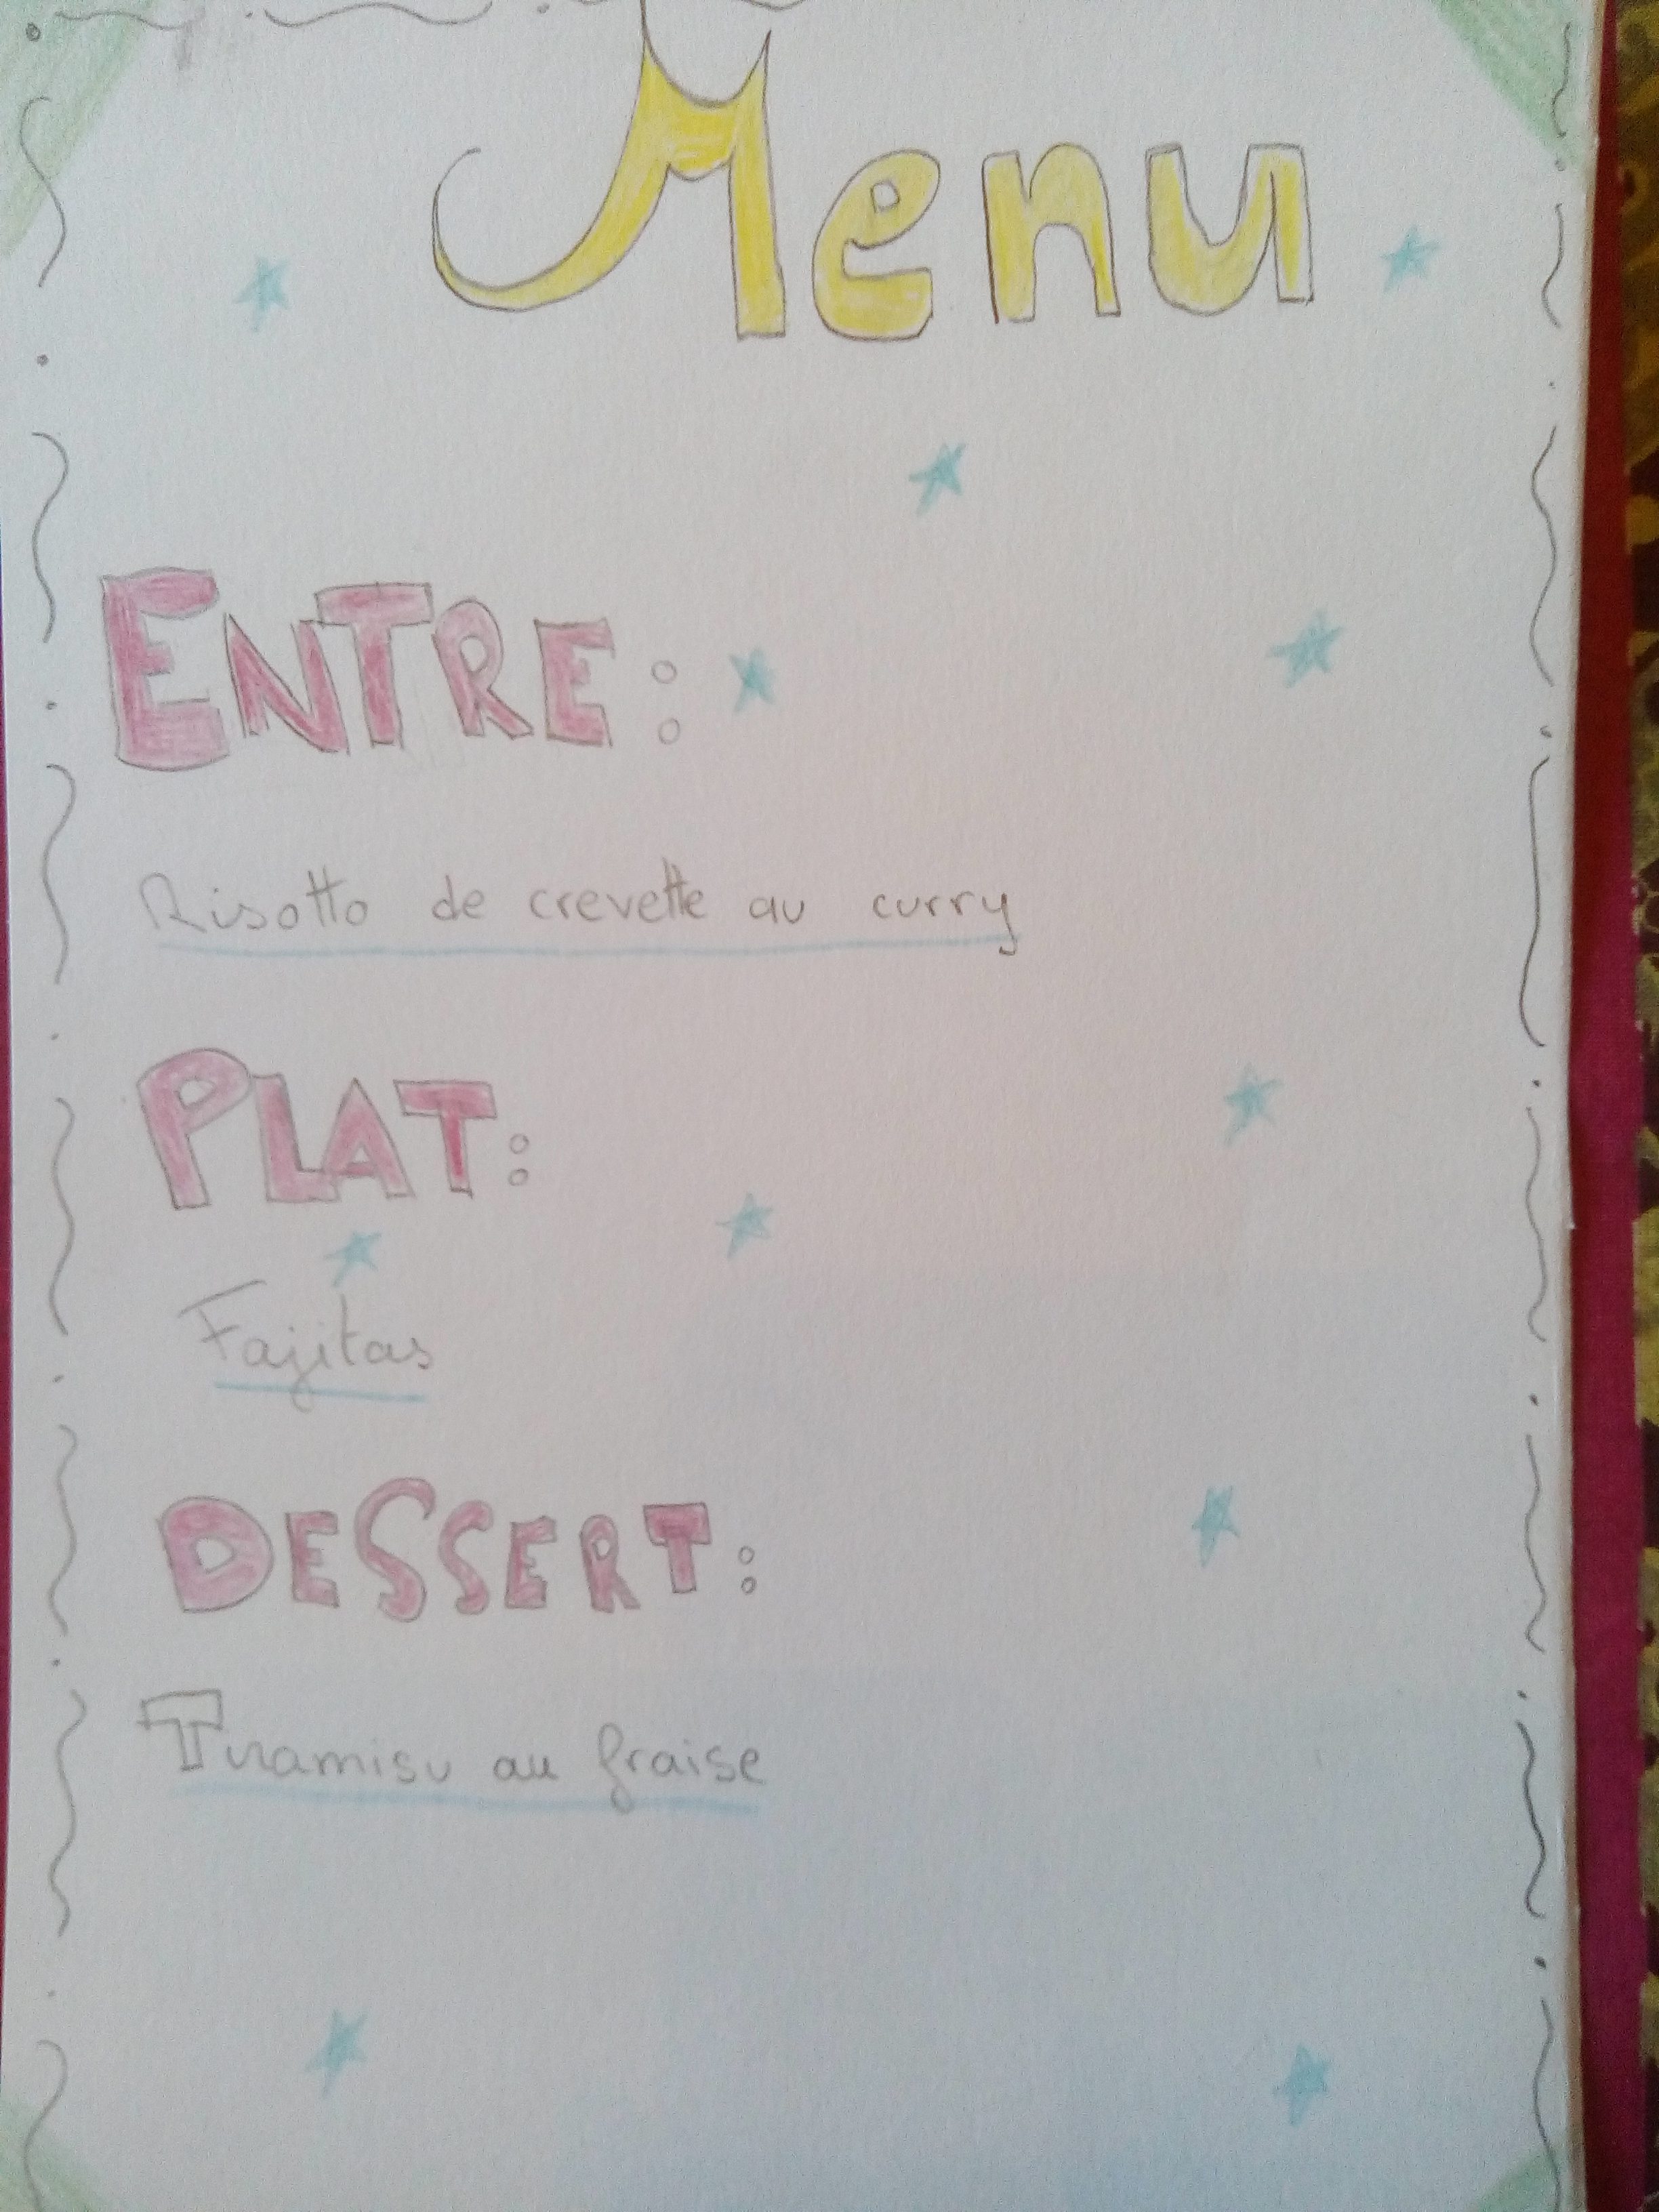 Menu
ENTRE :
Risotto de crevette au curry
PLAT :
Fajitas
DESSERT :
Tiramisu au fraise